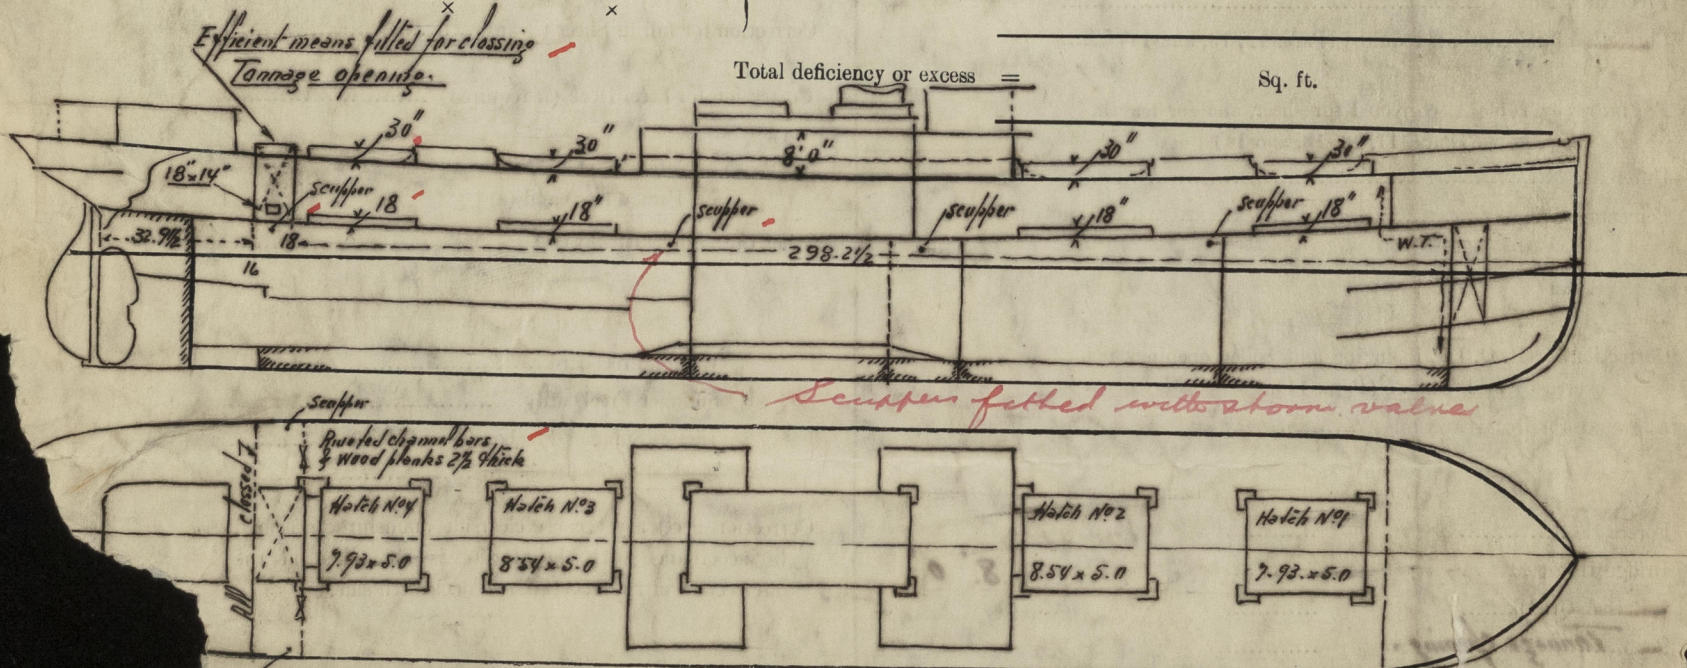 Efficient means fitted for clossing
Tonnage opening.
Total deficiency or excess =
Sq. ft.
30"
30"
8'0"
30"
30"
18"x14"
scupper
18
18"
scupper
scupper
18"
scupper
18"
32.9½
18
298.2½
W.T.
16
Scuppers fitted with storm valves
scupper
Riveted channel bars
& wood planks 2½ thick
All clossed
Hatch No4
7.93x5.0
Hatch No3
8.54x5.0
Hatch No2
8.54x5.0
Hatch No1
7.93.x5.0